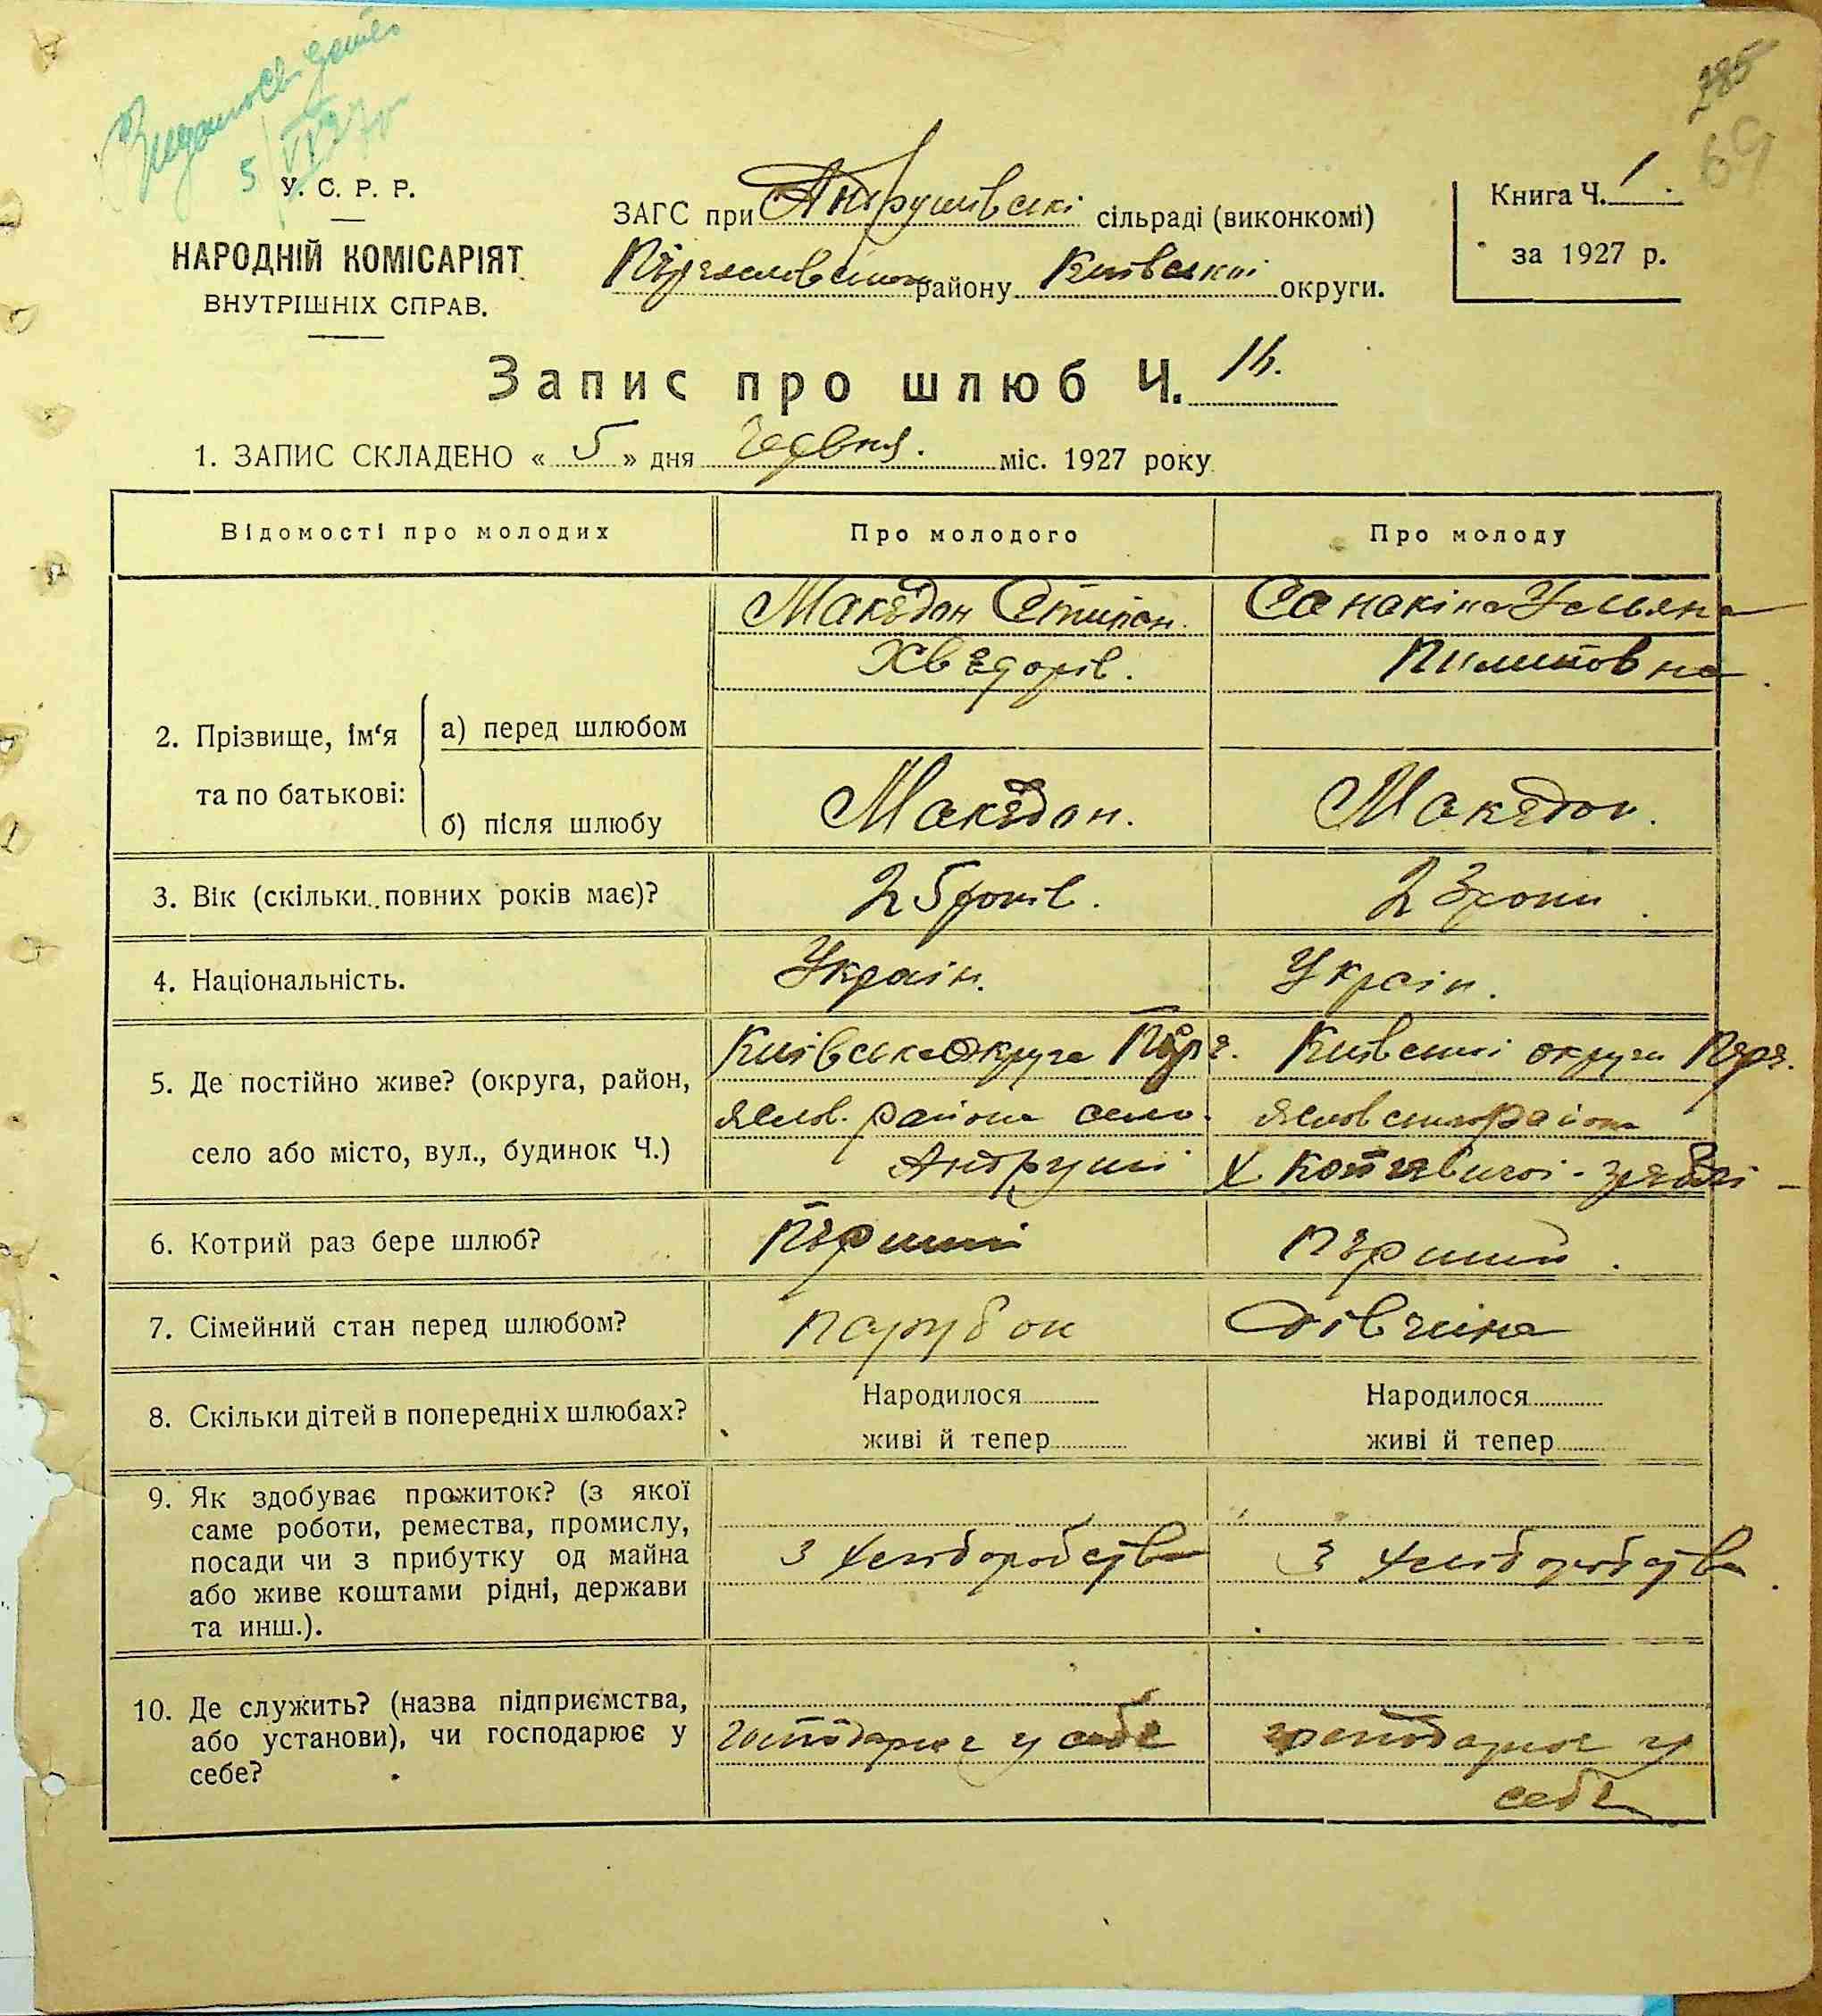 285
69
5/VI 27 р
У. С. Р. Р.
НАРОДНІЙ КОМІСАРІЯТ
ВНУТРІШНІХ СПРАВ.
ЗАГС при Андрушівські сільраді (виконкомі)
району Київської округи.
Книга Ч. 1.
за 1927 р.
Запис про шлюб Ч. 16.
1. ЗАПИС СКЛАДЕНО « 5 » дня Червня. міс. 1927 року
Відомості про молодих
Про молодого
Про молоду
2. Прізвище, ім‘я та по батькові:
а) перед шлюбом
Македон Степан
Хведорів.
Санакіна Ульяна
Пилиповна
б) після шлюбу
Македон.
Македон.
3. Вік (скільки повних років має)?
25 років.
23 роки
4. Національність.
Украін.
Украін.
5. Де постійно живе? (округа, район,
село або місто, вул., будинок Ч.)
Київська округа Пере.
яслов. района село
Андруші
Київської округи Пере.
ясловського района
х.
6. Котрий раз бере шлюб?
Перший
Перший.
7. Сімейний стан перед шлюбом?
парубок
дівчина
8. Скільки дітей в попередніх шлюбах?
Народилося
живі й тепер
Народилося
живі й тепер
9. Як здобуває прожиток? (з якої
саме роботи, ремества, промислу,
посади чи з прибутку од майна
або живе коштами рідні, держави
та инш.).
З хліборобства
З хліборобства
10. Де служить? (назва підприємства,
або установи), чи господарює у
себе?
господарює у себе
господарює у
себе